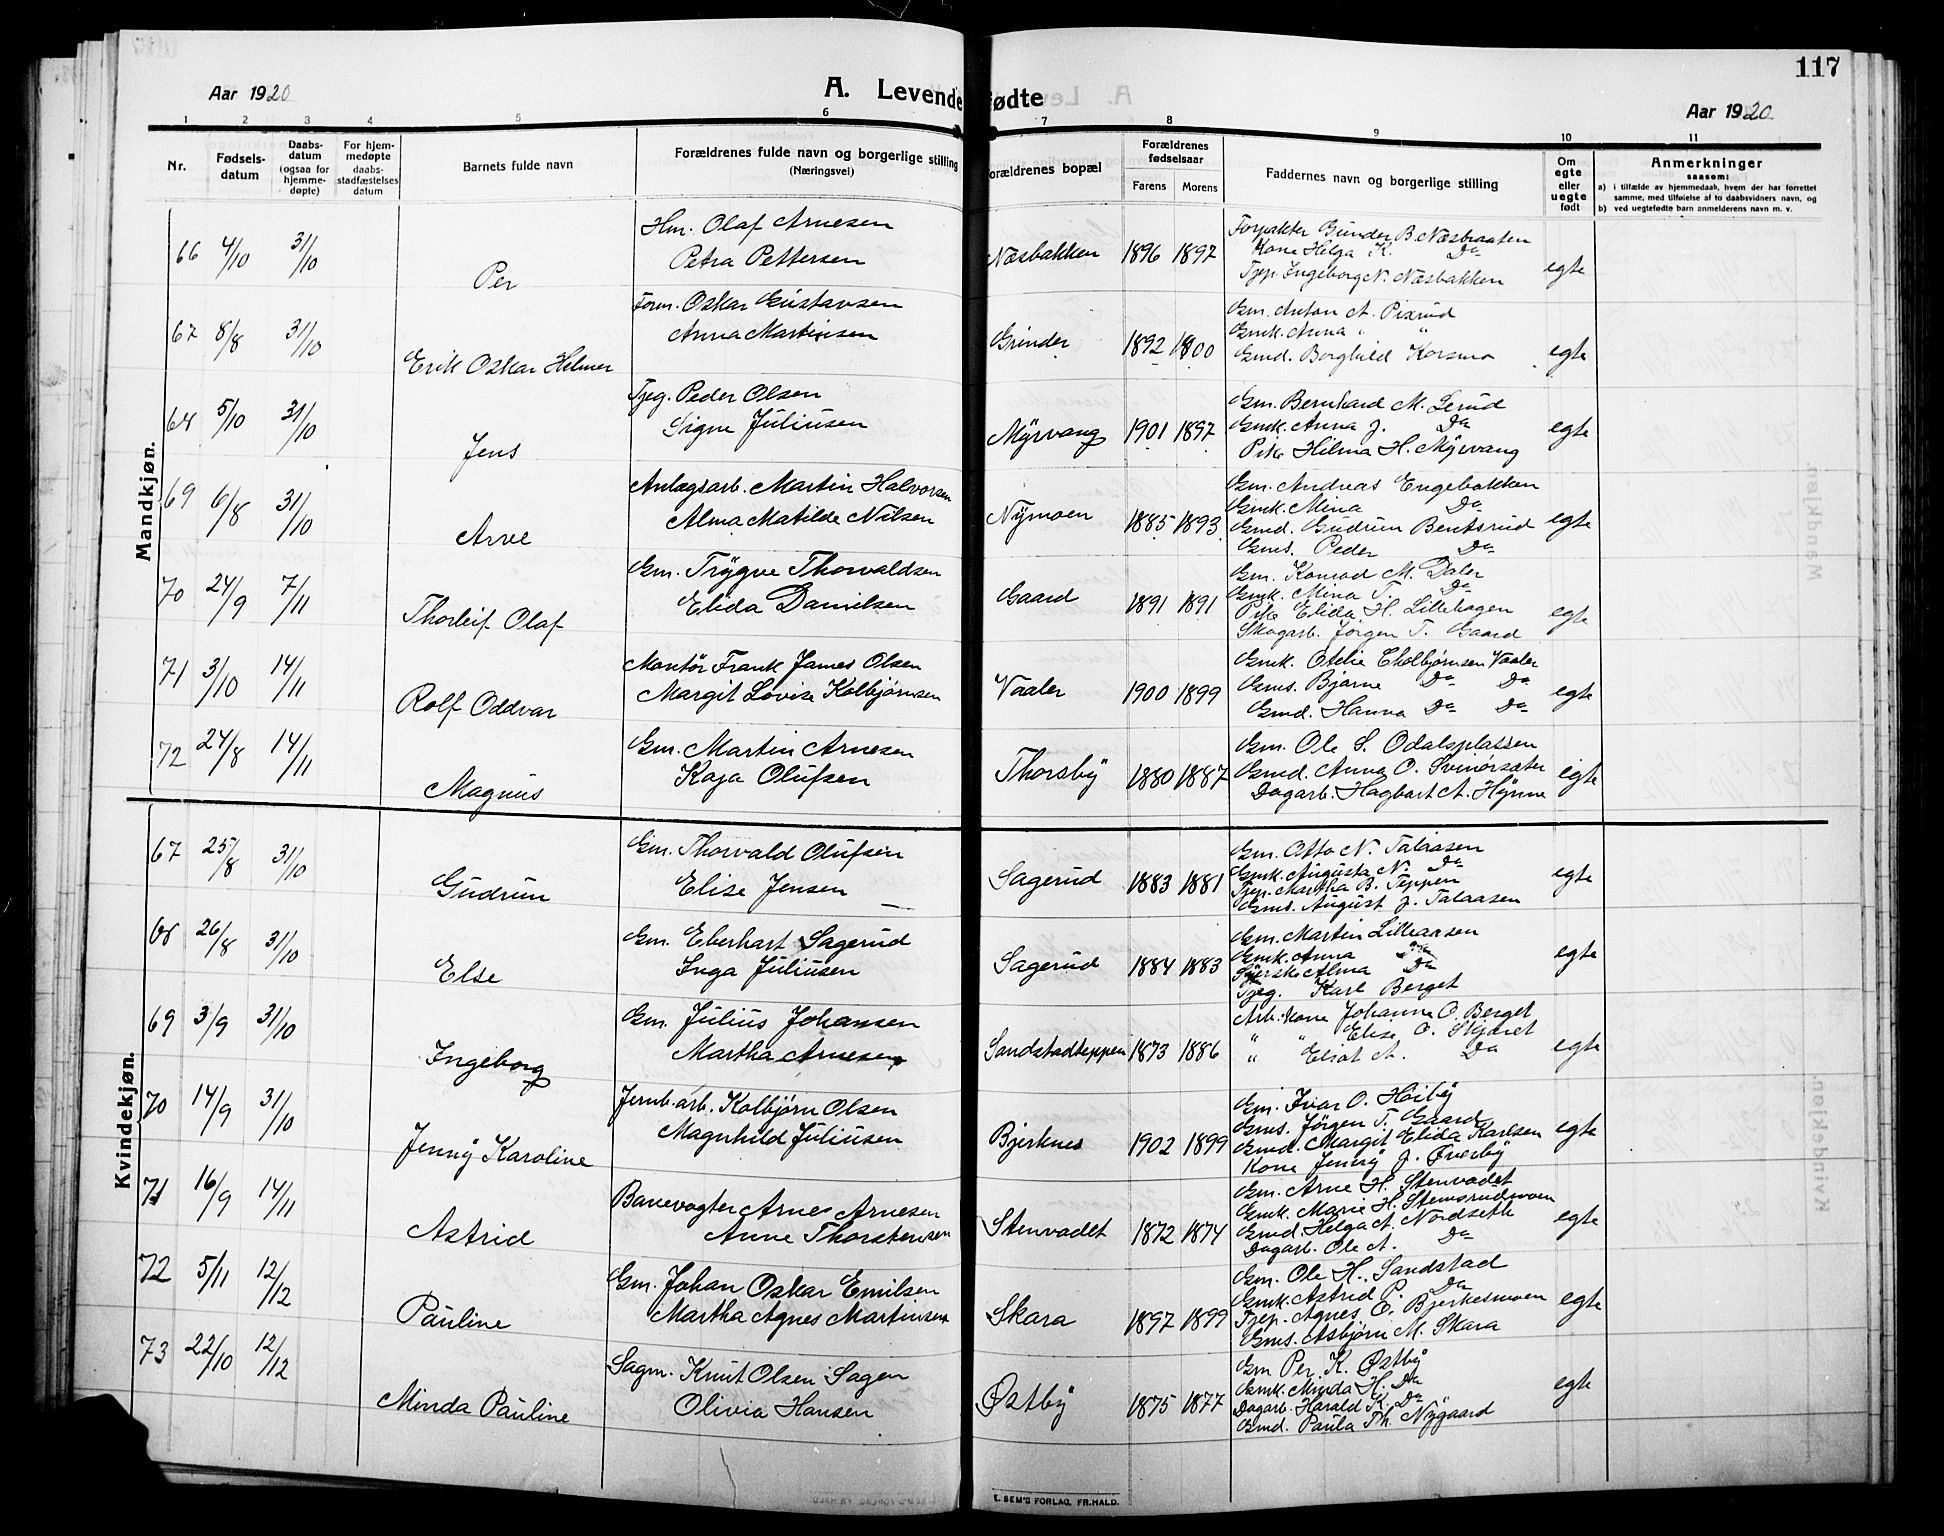 117
Aar 1920
A. Levendefødte
Aar 1920
1 2 3 4 5 6 7 8 9 10 11
Nr.
Fødsels-
datum
Daabs-
datum
(ogsaa for
hjemme-
døpte)
For hjem-
medøpte
daabs-
stadfæstelses
datum
Barnets fulde navn
Forældrenes fulde navn og borgerlige stilling
(Næringsvei)
Forældrenes bopæl
Forældrenes
fødselsaar
Farens Morens
Faddernes navn og borgerlige stilling
Om
egte
eller
uegte
født
Anmerkninger
saasom:
a) i tilfælde av hjemmedaab, hvem der har forrettet
samme, med tilføielse af to daabsvidners navn, og
b) ved uegtefødte barn anmelderens navn m. v.
Mandkjøn.
66 4/10 31/10 Per
Hm. Olaf Arnesen
Petra Pettersen
Næsbakken 1896 1897
Forpakter Gunder B. Næsbraaten
Kone Helga K. Do
Tjep. Ingeborg N. Næsbakken
egte
67 8/8 31/10 Erik Oskar Helmer
Form. Oskar Gustavsen
Anna Martinsen
Grinder 1892 1900
Gm. Anton A. Pixrud
Gmk. Anna " "
Gmd. Borghild Korsmo
egte
68 5/10 31/10 Jens
Tjeg. Peder Olsen
Signe Juliusen
Myrvang 1901 1897
Gm. Bernhard M. Lerud
Gmk. Anna J. Do
Pike Hilma H. Myrvang
egte
69 6/8 31/10 Arve
Anlægsarb. Martin Halvorsen
Alma Matilde Nilsen
Nymoen 1885 1893
Gm. Andreas Engebakken
Gmk. Mina Do
Gmd. Gudrun Bentsrud
Gms. Peder Do
egte
70 24/9 7/11 Thorleif Olaf
Gm. Trygve Thorvaldsen
Elida Danielsen
Gaard 1891 1891
Gm. Konrad M. Daler
Gmk. Mina T. Do
Pike Elida H. Lillehagen
Skogarb. Jørgen T. Gaard
egte
71 3/10 14/11 Rolf Oddvar
Montør Frank James Olsen
Margit Lovise Kolbjørnsen
Vaaler 1900 1899
Gmk. Otelie Kolbjørnsen Vaaler
Gms. Bjarne Do Do
Gmd. Hanna Do Do
egte
72 24/8 14/11 Magnus
Gm. Martin Arnesen
Kaja Olufsen
Thorsby 1880 1887
Gm. Ole S. Odalsplassen
Gmd. Anna O. Svinørsæter
Dagarb. Hagbart A. Hynne
egte
Kvindekjøn.
67 25/8 31/10 Gudrun
Gm. Thorvald Olufsen
Elise Jensen
Sagerud 1883 1881
Gm. Otto N. Talaasen
Gmk. Augusta N. Do
Tjep. Martha B. Teppen
Gms. August J. Talaasen
egte
68 26/8 31/10 Else
Gm. Eberhart Sagerud
Inga Juliusen
Sagerud 1884 1883
Gm. Martin Lilleaasen
Gmk. Anna Do
Alma Do
Tjeg. Karl Berget
egte
69 3/9 31/10 Ingeborg
Gm. Julius Johansen
Martha Arnesen
Sandstadteppen 1873 1886
Arb. kone Johanne O. Berget
" " Elise O. Skjæret
" " Elist A. Do
egte
70 14/9 31/10 Jenny Karoline
Jernb. arb. Kolbjørn Olsen
Magnhild Juliusen
Bjerknes 1902 1899
Gm. Ivar O. Høiby
Gms. Jørgen T. Gaard
Gmd. Margit Elida Karlsen
Kone Jenny J. Øverby
egte
71 16/9 14/11 Astrid
Banevogter Arne Arnesen
Anne Thorstensen
Stenvadet 1872 1874
Gm. Arne H. Stenvadet
Gmk. Marie H. Stemsrudmoen
Gmd. Helga A. Nordseth
Dagarb. Ole A. Do
egte
72 5/11 12/12 Pauline
Gm. Johan Oskar Emilsen
Martha Agnes Martinsen
Skara 1897 1899
Gm. Ole H. Sandstad
Gmk. Astrid P. Do
Tjep. Agnes O. Bjerkesmoen
Gms. Asbjørn M. Skara
egte
73 22/10 12/12 Minda Pauline
Sagm. Knut Olsen Sagen
Olivia Hansen
Østby 1875 1877
Gm Per K. Østby
Gmk. Minda H. Do
Dagarb. Harald K. Do
Gmd. Paula Th. Nygaard
egte
E. SEM'S FORLAG, FR.HALD.